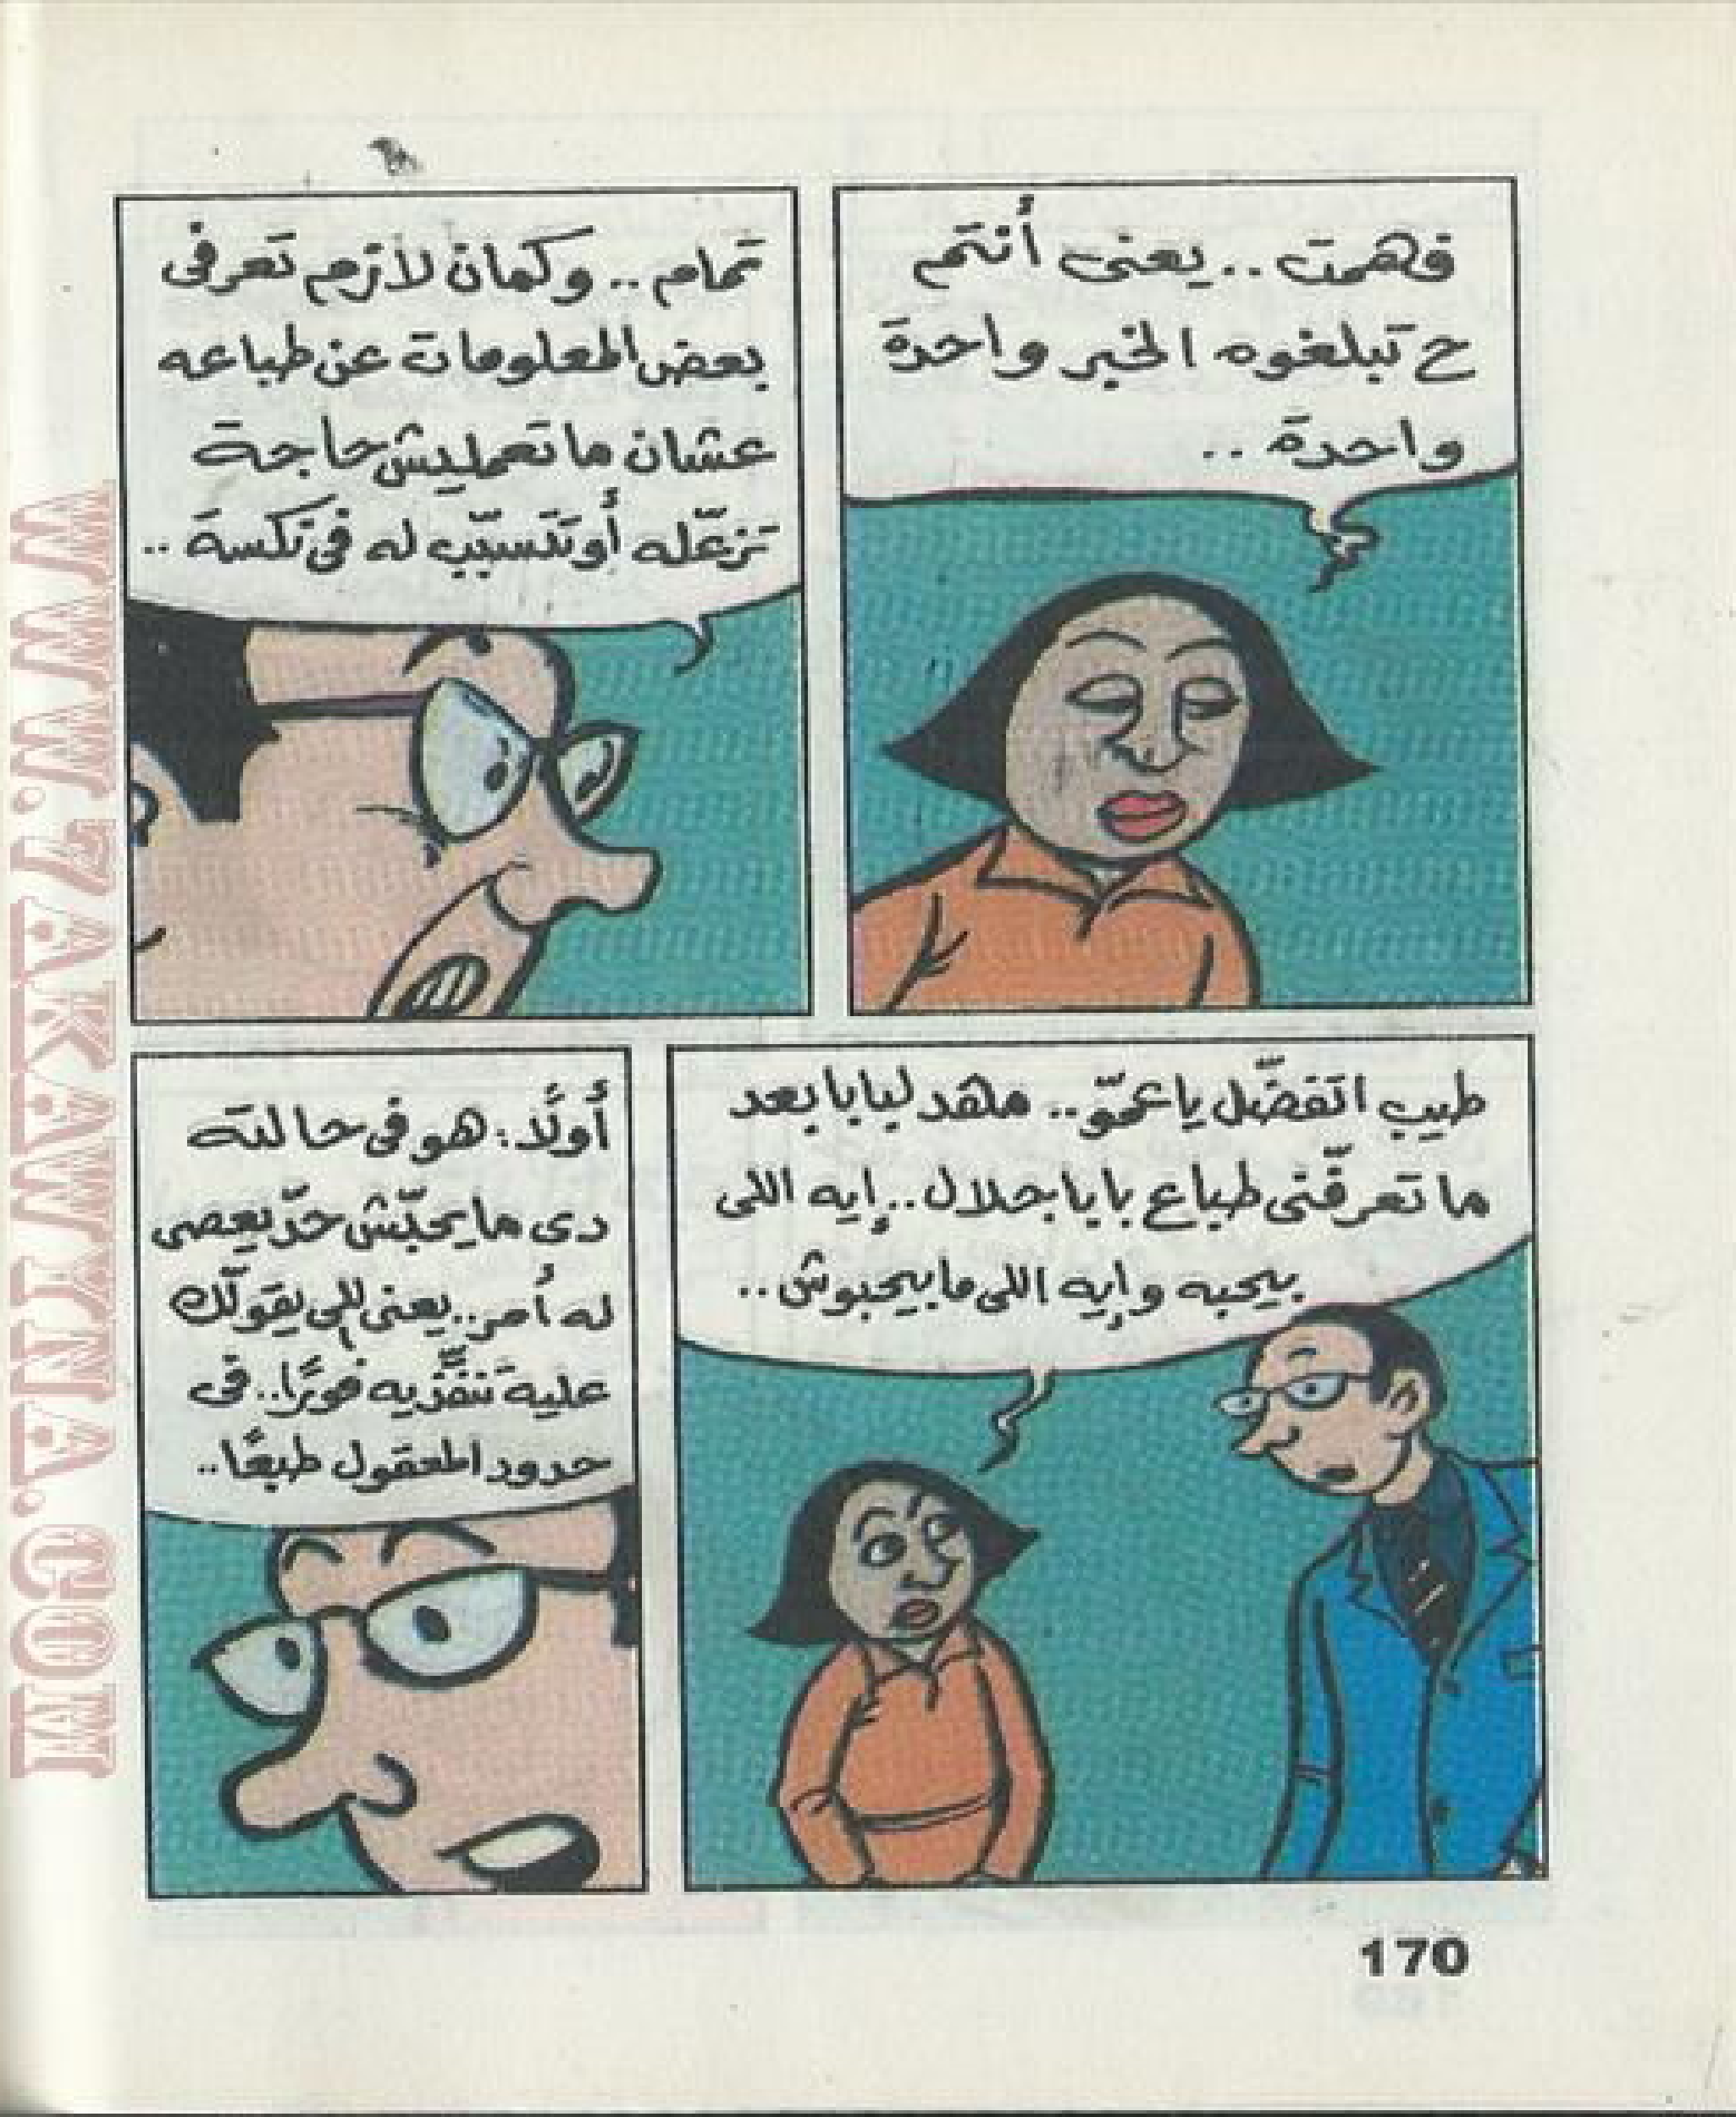 فهمت.. يعنى أنتم
ح تبلغوه الخبر واحدة
واحدة..
تمام.. وكمان لازم تعرفى
بعض المعلومات عن طباعه
عشان ما تعمليش حاجة
تزعّله أو تتسبّب له فى نكسة..
طيب اتفضّل يا عمّو.. مهّد لبابا بعد
ما تعرّفنى طباع بابا جلال.. إيه اللى
بيحبه وإيه اللى مابيحبوش..
أولًا: هو فى حالته
دى ما يحبّش حدّ يعصى
له أمر.. يعنى اللى يقولّك
عليه تنفّذيه فورًا.. فى
حدود المعقول طبعًا..
170
WWW.7AKAWINNA.COM